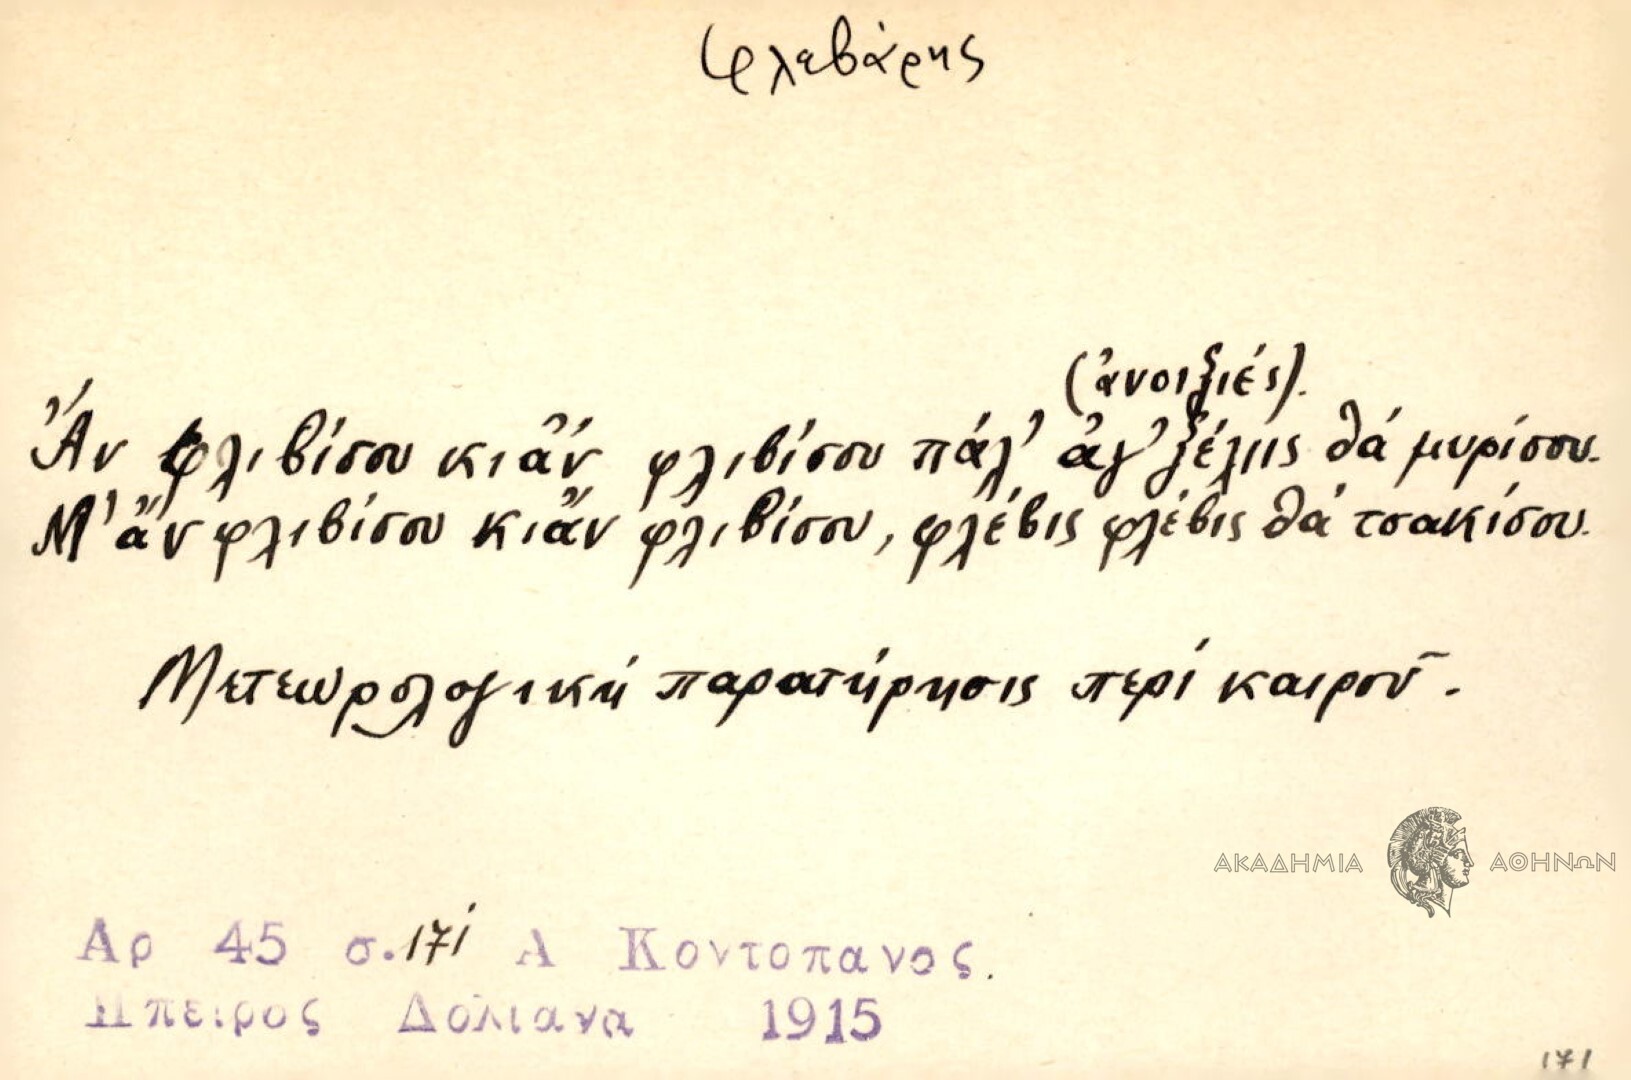 Φλεβάρης
(ἀνοιξιές).
Ἄν φλιβίσου κιἄν φλιβίσου πάλ' ἀγ'ξέλιις θά μυρίσου.
Μ' ἄν φλιβίσου κιἄν φλιβίσου, φλέβις φλέβις θά τσακίσου.
Μετεωρολογική παρατήρησις περί καιροῦ.
ΑΚΑΔΗΜΙΑ ΑΘΗΝΩΝ
Αρ 45 σ. 171 Α Κοντοπανος.
Ηπειρος Δολιανα 1915
171